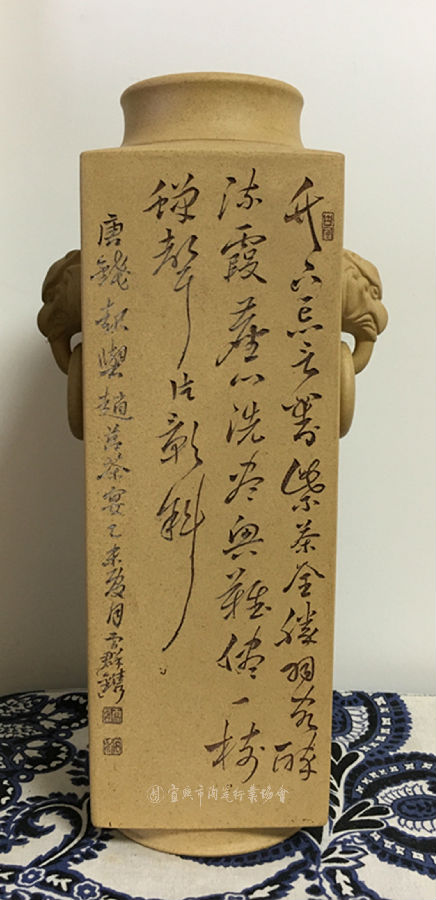 竹下忘言對紫茶全勝羽客醉
流霞塵心洗盡興難儘一樹
蟬聲片影斜
唐錢起與趙莒茶宴乙未夏月群鐫
宜興市陶瓷行業協會